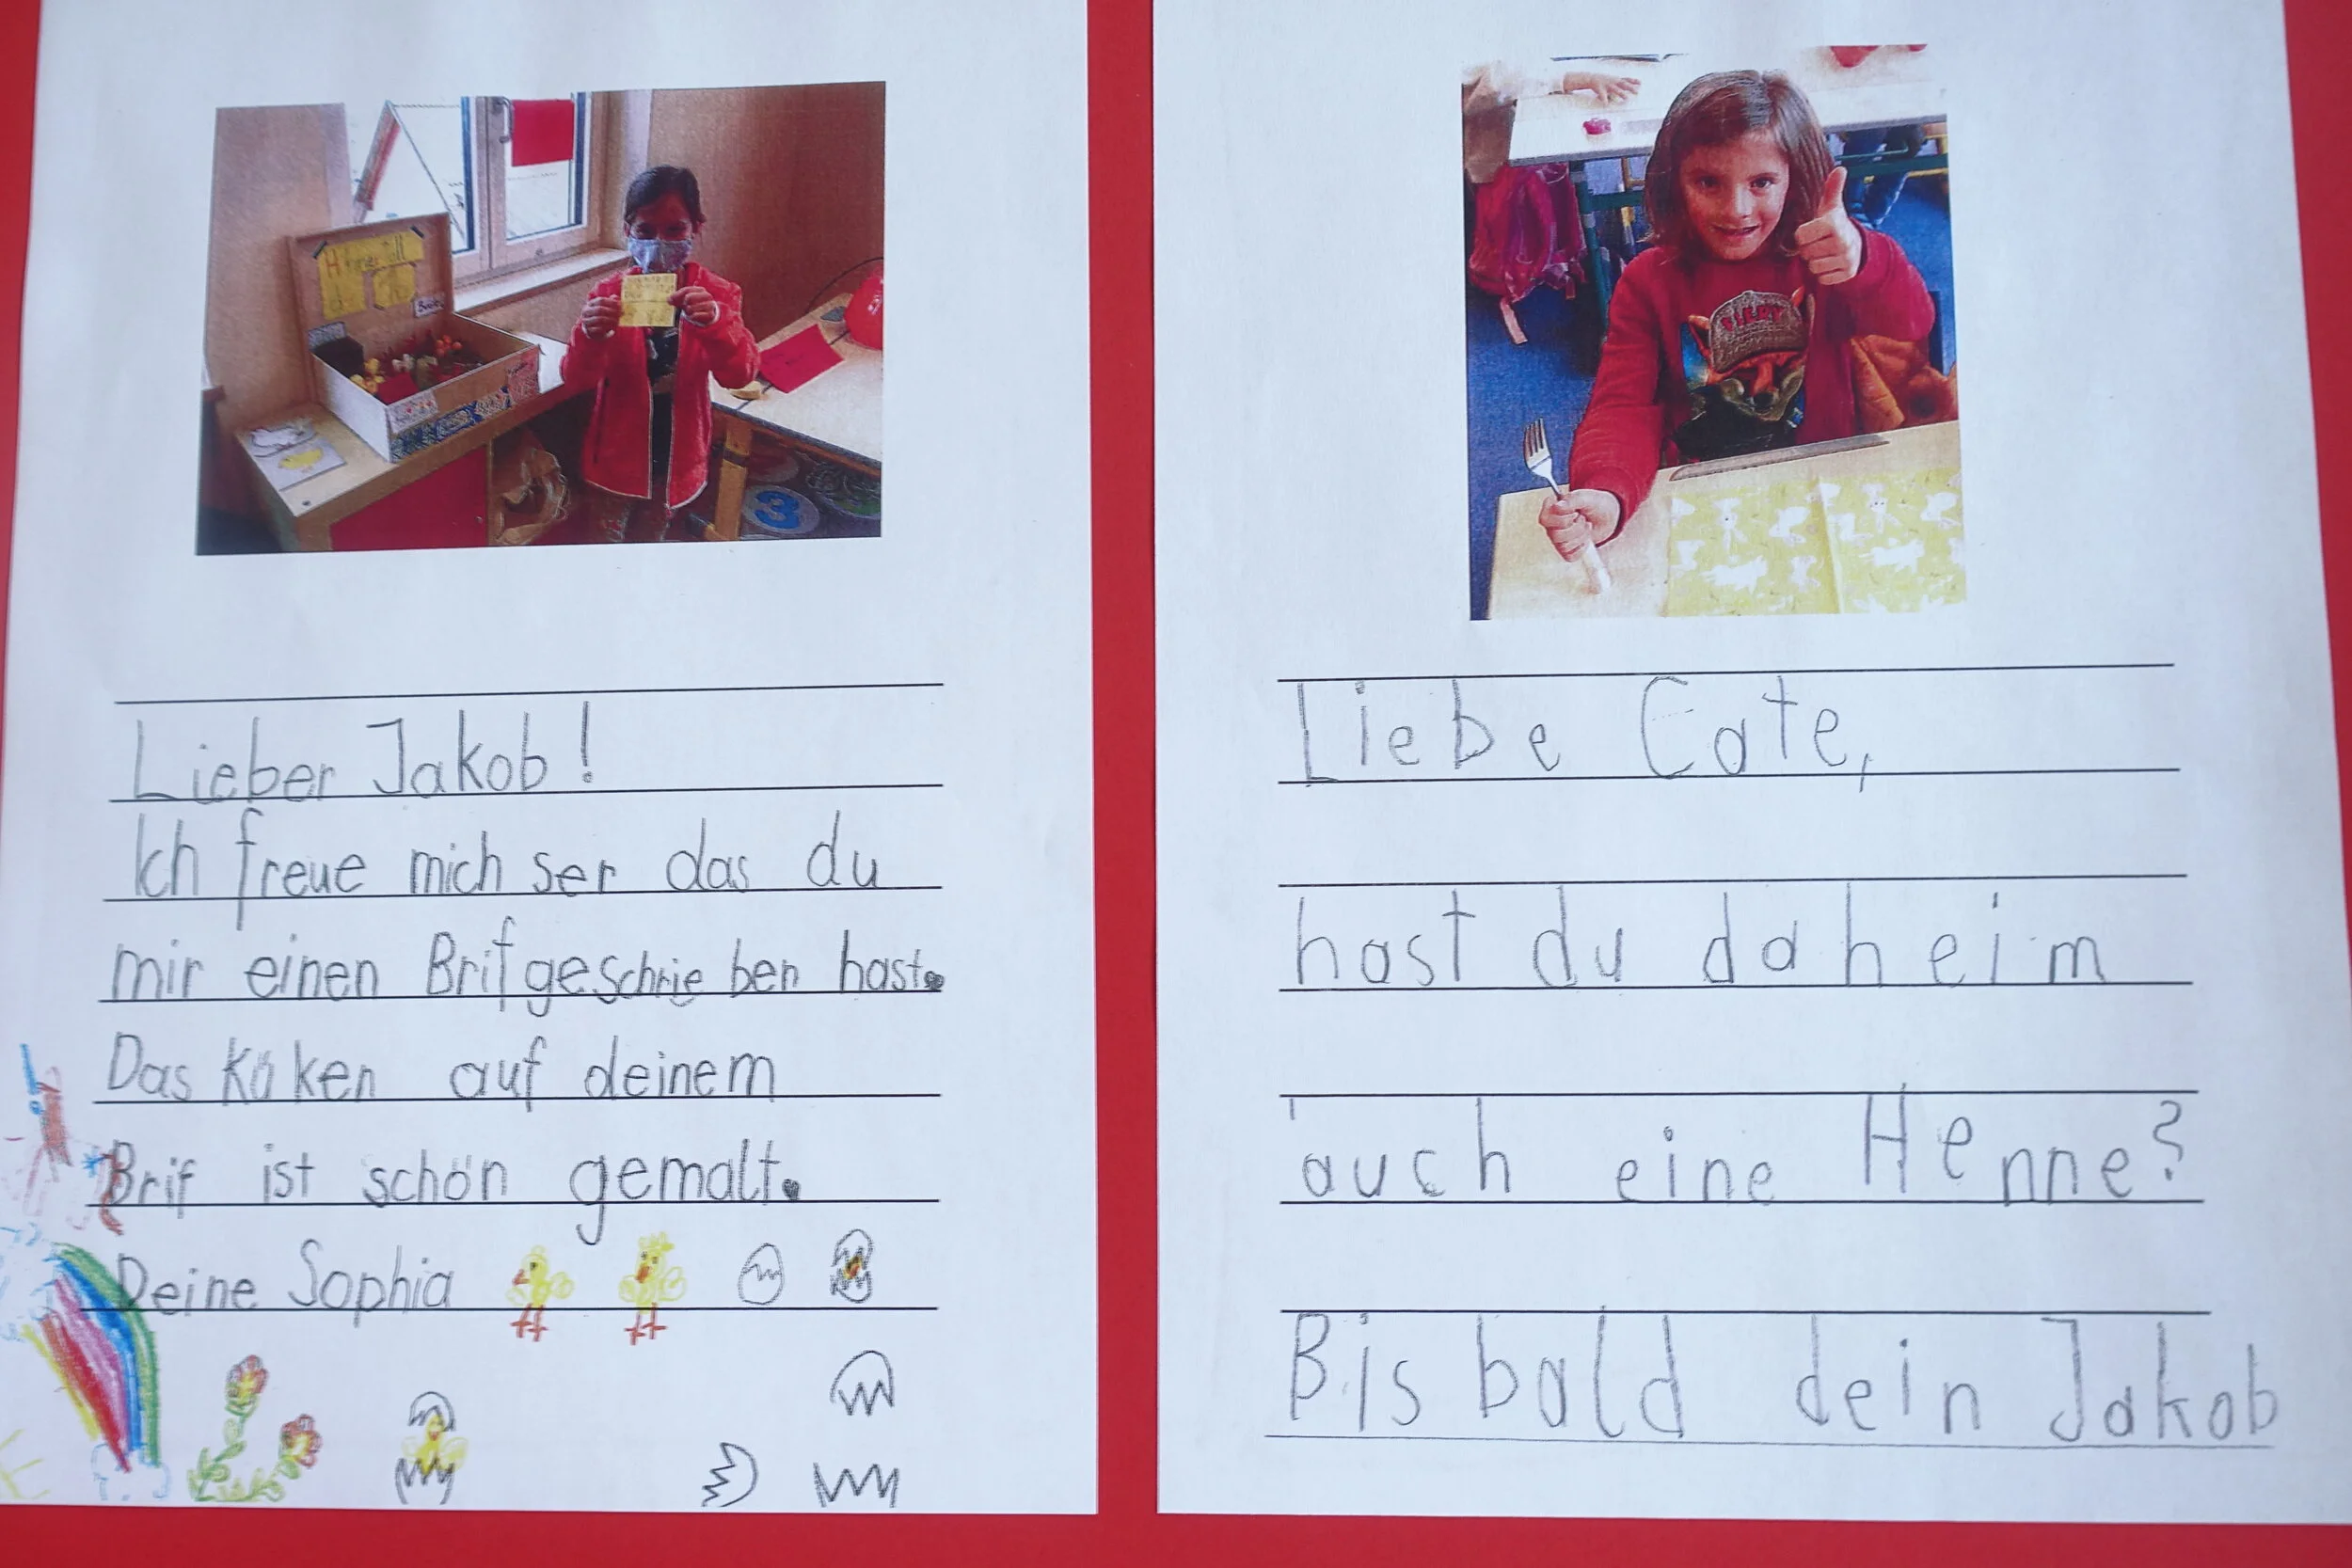 Lieber Jakob!
Ich freue mich ser das du
mir einen Brif geschrieben hast.
Das Küken auf deinem
Brif ist schön gemalt.
Deine Sophia
3
Liebe Cate,
hast du daheim
auch eine Henne?
Bis bald dein Jakob